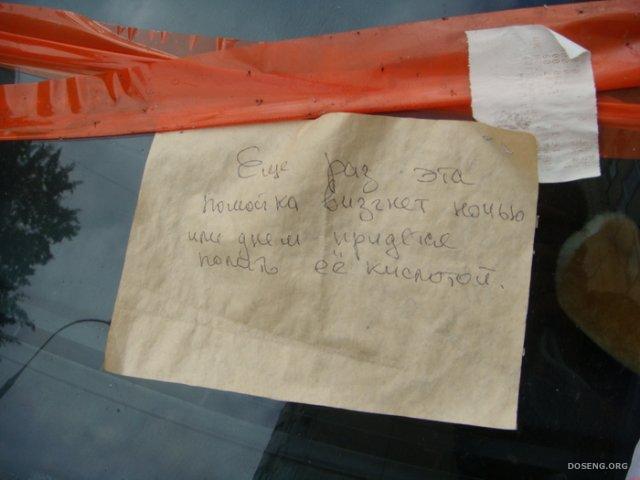 Еще раз эта
помойка визгнет ночью
или днем придется
полить её кислотой.
DOSENG.ORG